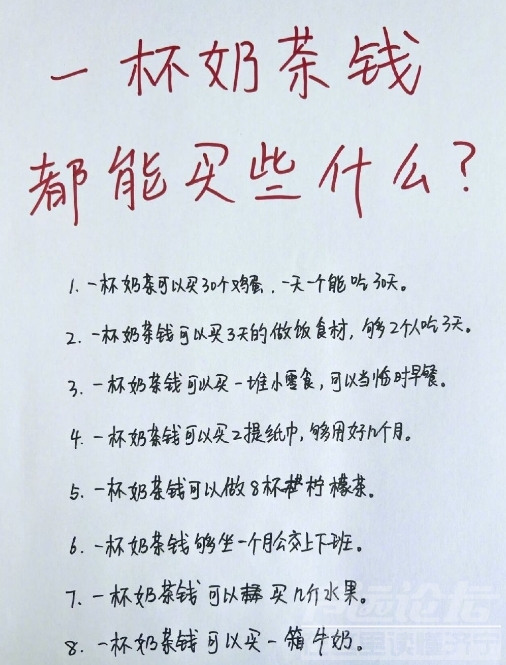 一杯奶茶钱
都能买些什么?
1. 一杯奶茶可以买30个鸡蛋，一天一个能吃30天。
2. 一杯奶茶钱可以买3天的做饭食材，够2个人吃3天。
3. 一杯奶茶钱可以买一堆小零食，可以当临时早餐。
4. 一杯奶茶钱可以买2提纸巾，够用好几个月。
5. 一杯奶茶钱可以做8杯柠檬茶。
6. 一杯奶茶钱够坐一个月公交上下班。
7. 一杯奶茶钱可以买几斤水果。
8. 一杯奶茶钱可以买一箱牛奶。